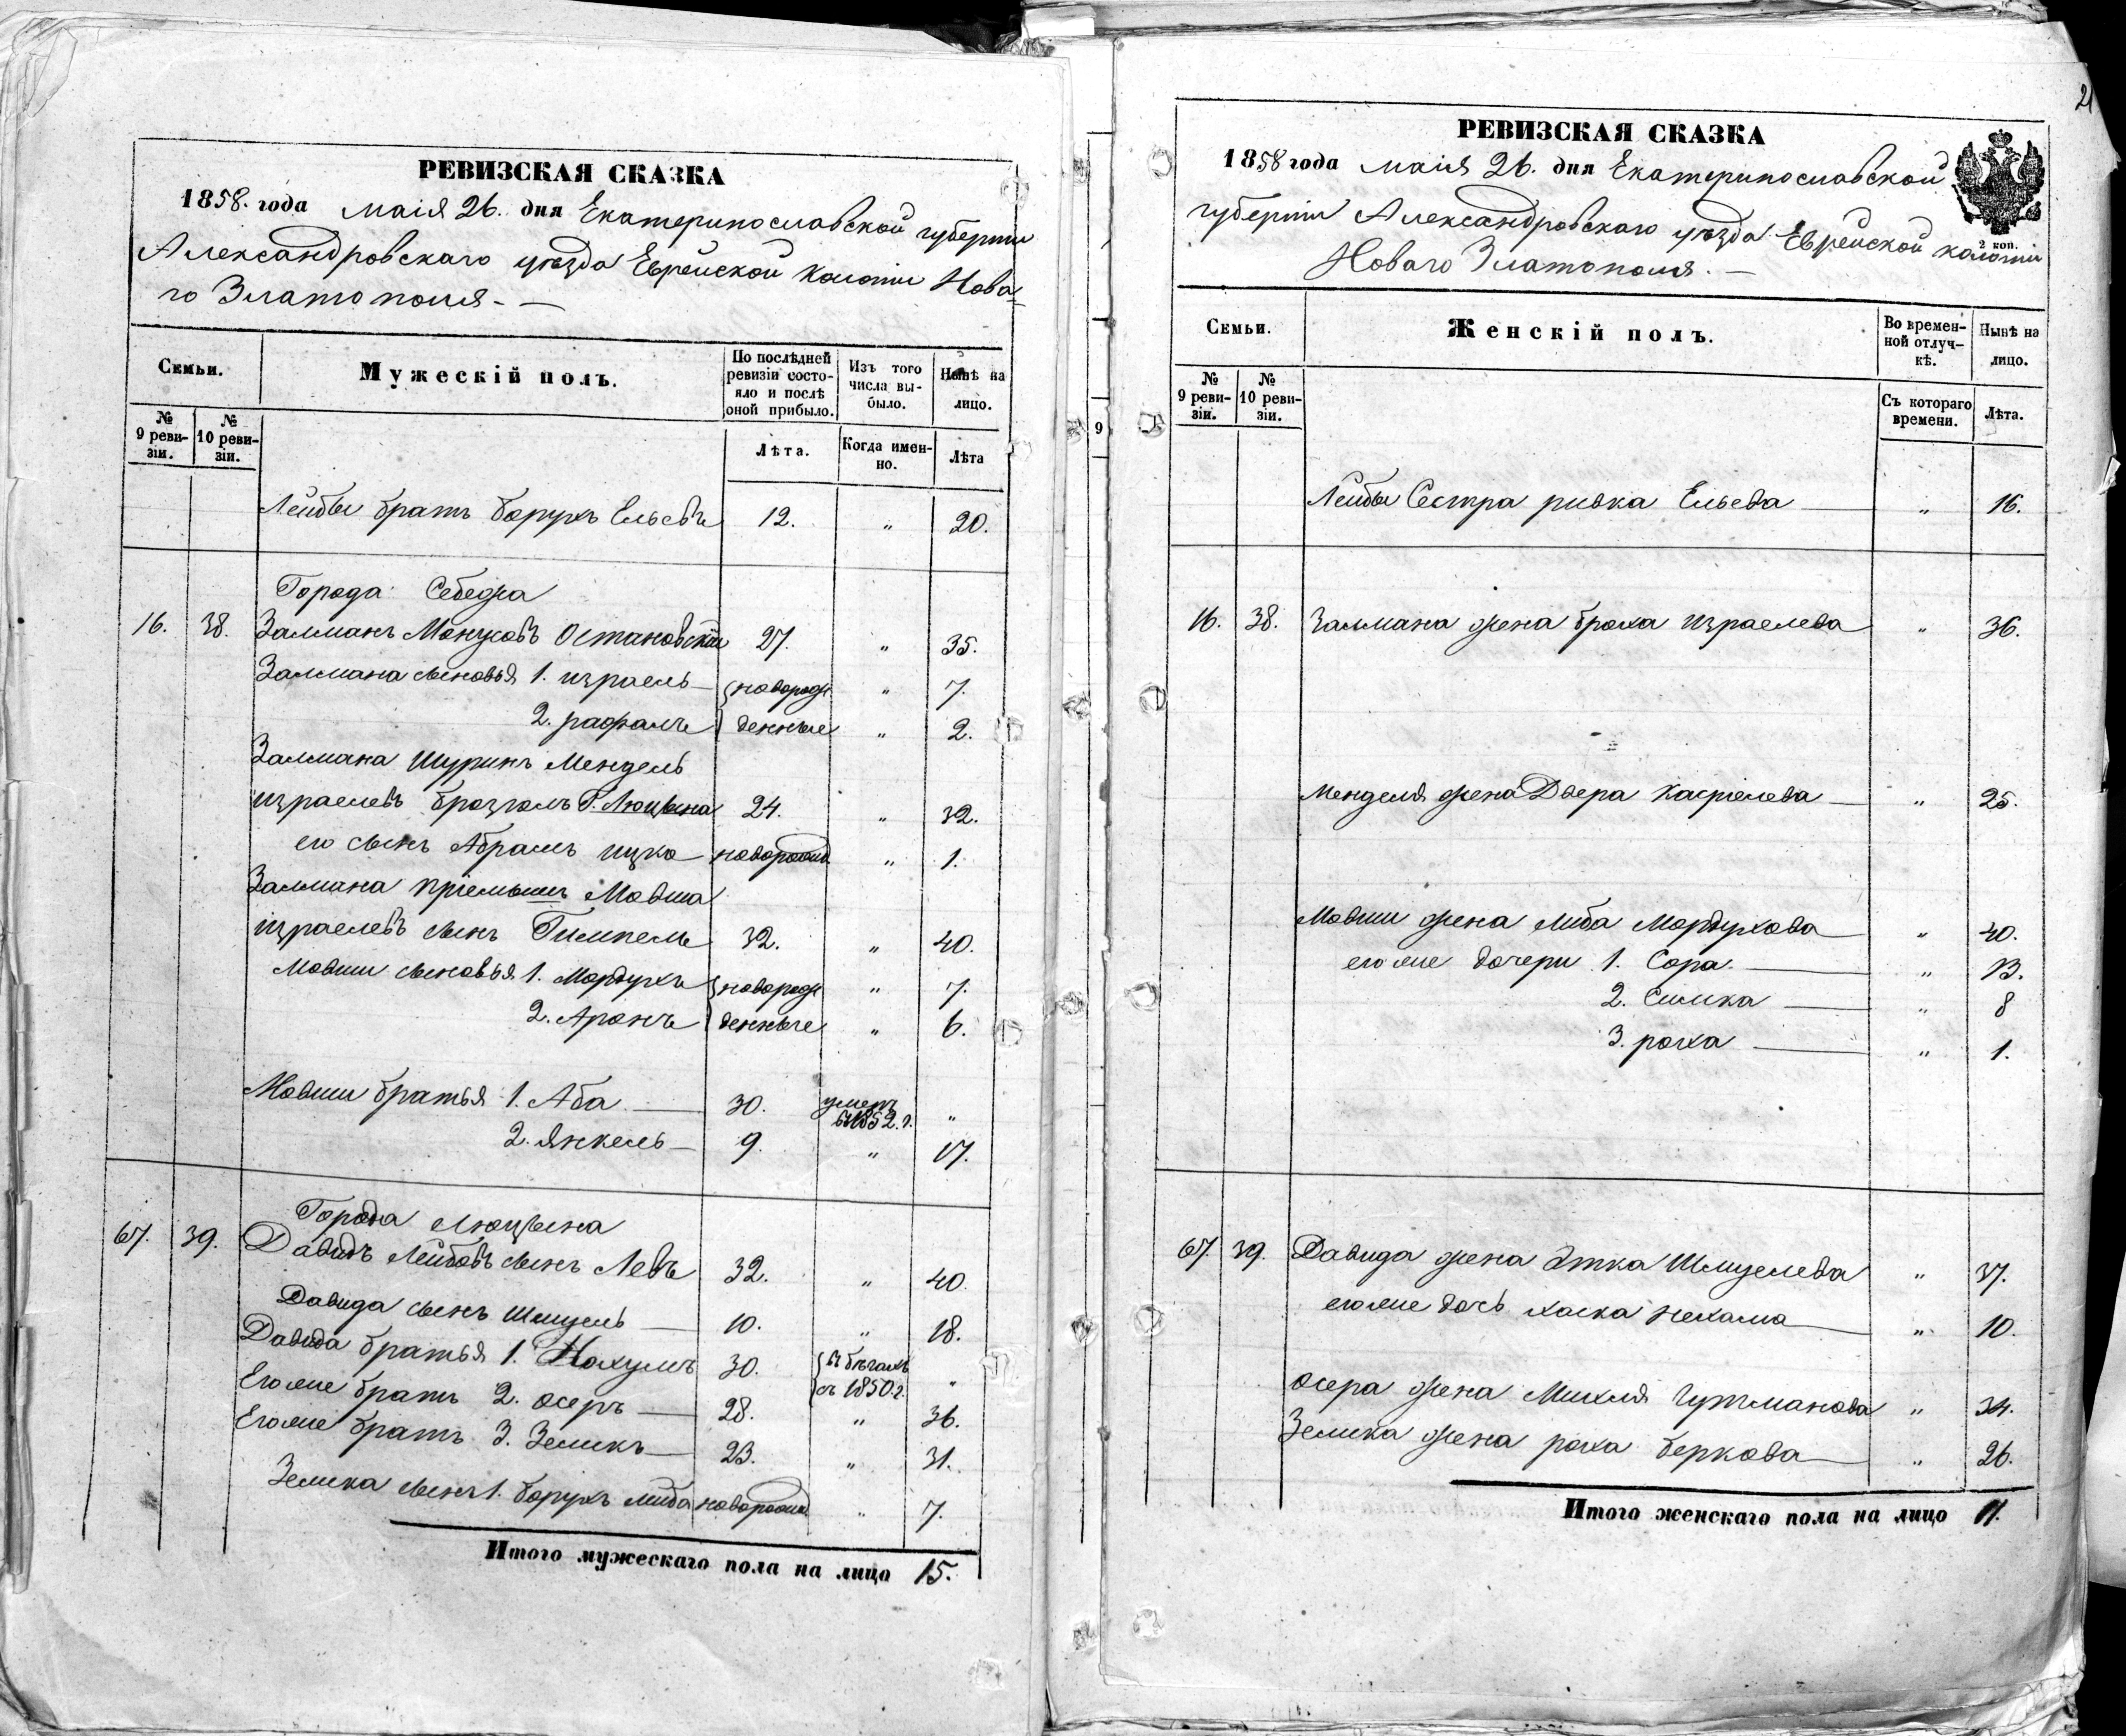 РЕВИЗСКАЯ СКАЗКА
1858. года маія 26. дня Екатеринославской губерніи
Александровскаго уѣзда Еврейской колоніи Нова-
го Златополя.
Семьи.
Мужескій полъ.
По послѣдней ревизіи состояло и послѣ оной прибыло.
Изъ того числа выбыло.
Нынѣ на лицо.
№ 9 ревизіи.
№ 10 ревизіи.
Лѣта.
Когда именно.
Лѣта
Лейбы братъ борухъ Ельевъ 12. „ 20.
Города Себежа
16. 38. Залманъ Монусовъ Остановскій 27. „ 35.
Залмана сыновья 1. израель новорож „ 7.
2. рафаль денные „ 2.
Залмана Шуринъ Мендель
израелевъ брозголь Г. Люцына 24. „ 32.
его сынъ Абрамъ ицко новорожд „ 1.
Залмана пріемышъ Мовша
израелевъ сынъ Гимпель 32. „ 40.
Мовши сыновья 1. Мордухъ новорож „ 7.
2. Аронъ денные „ 6.
Мовши братья 1. Аба 30. умеръ въ 1852. г. „
2. янкель 9. „ 17.
Города Люцына
67. 39. Давидъ Лейбовъ сынъ Левъ 32. „ 40.
Давида сынъ Шмуель 10. „ 18.
Давида братья 1. Нохумъ 30. въ бѣгахъ съ 1850 г. „
Его же братъ 2. осеръ 28. „ 36.
Его же братъ 3. Зеликъ 23. „ 31.
Зелика сынъ 1. борухъ либа новорожд „ 7.
Итого мужескаго пола на лицо 15.
9
21
РЕВИЗСКАЯ СКАЗКА
1858 года маія 26. дня Екатеринославской
губерніи Александровскаго уѣзда Еврейской колоніи
2 коп.
Новаго Златополя.
Семьи.
Женскій полъ.
Во временной отлучкѣ.
Нынѣ на лицо.
№ 9 ревизіи.
№ 10 ревизіи.
Съ котораго времени.
Лѣта.
Лейбы Сестра ривка Ельева „ 16.
16. 38. Залмана жена броха израелева „ 36.
Менделя жена Двера Касріелева „ 25.
Мовши жена Либа Мордухова „ 40.
его же дочери 1. Сора „ 13.
2. Симка „ 8
3. роха „ 1.
67. 39. Давида жена Этка Шмуелева „ 37.
его же дочь хаска нехама „ 10.
осера жена Михля Гутманова „ 34.
Зелика жена роха беркова „ 26.
Итого женскаго пола на лицо 11.